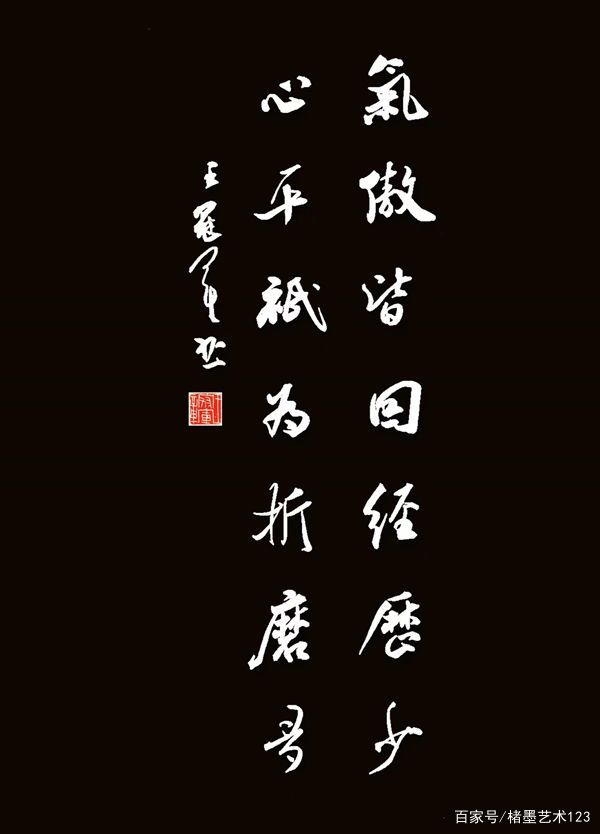 氣傲皆因經歷少
心平祇為折磨多
王冠軍
百家号/楮墨艺术123